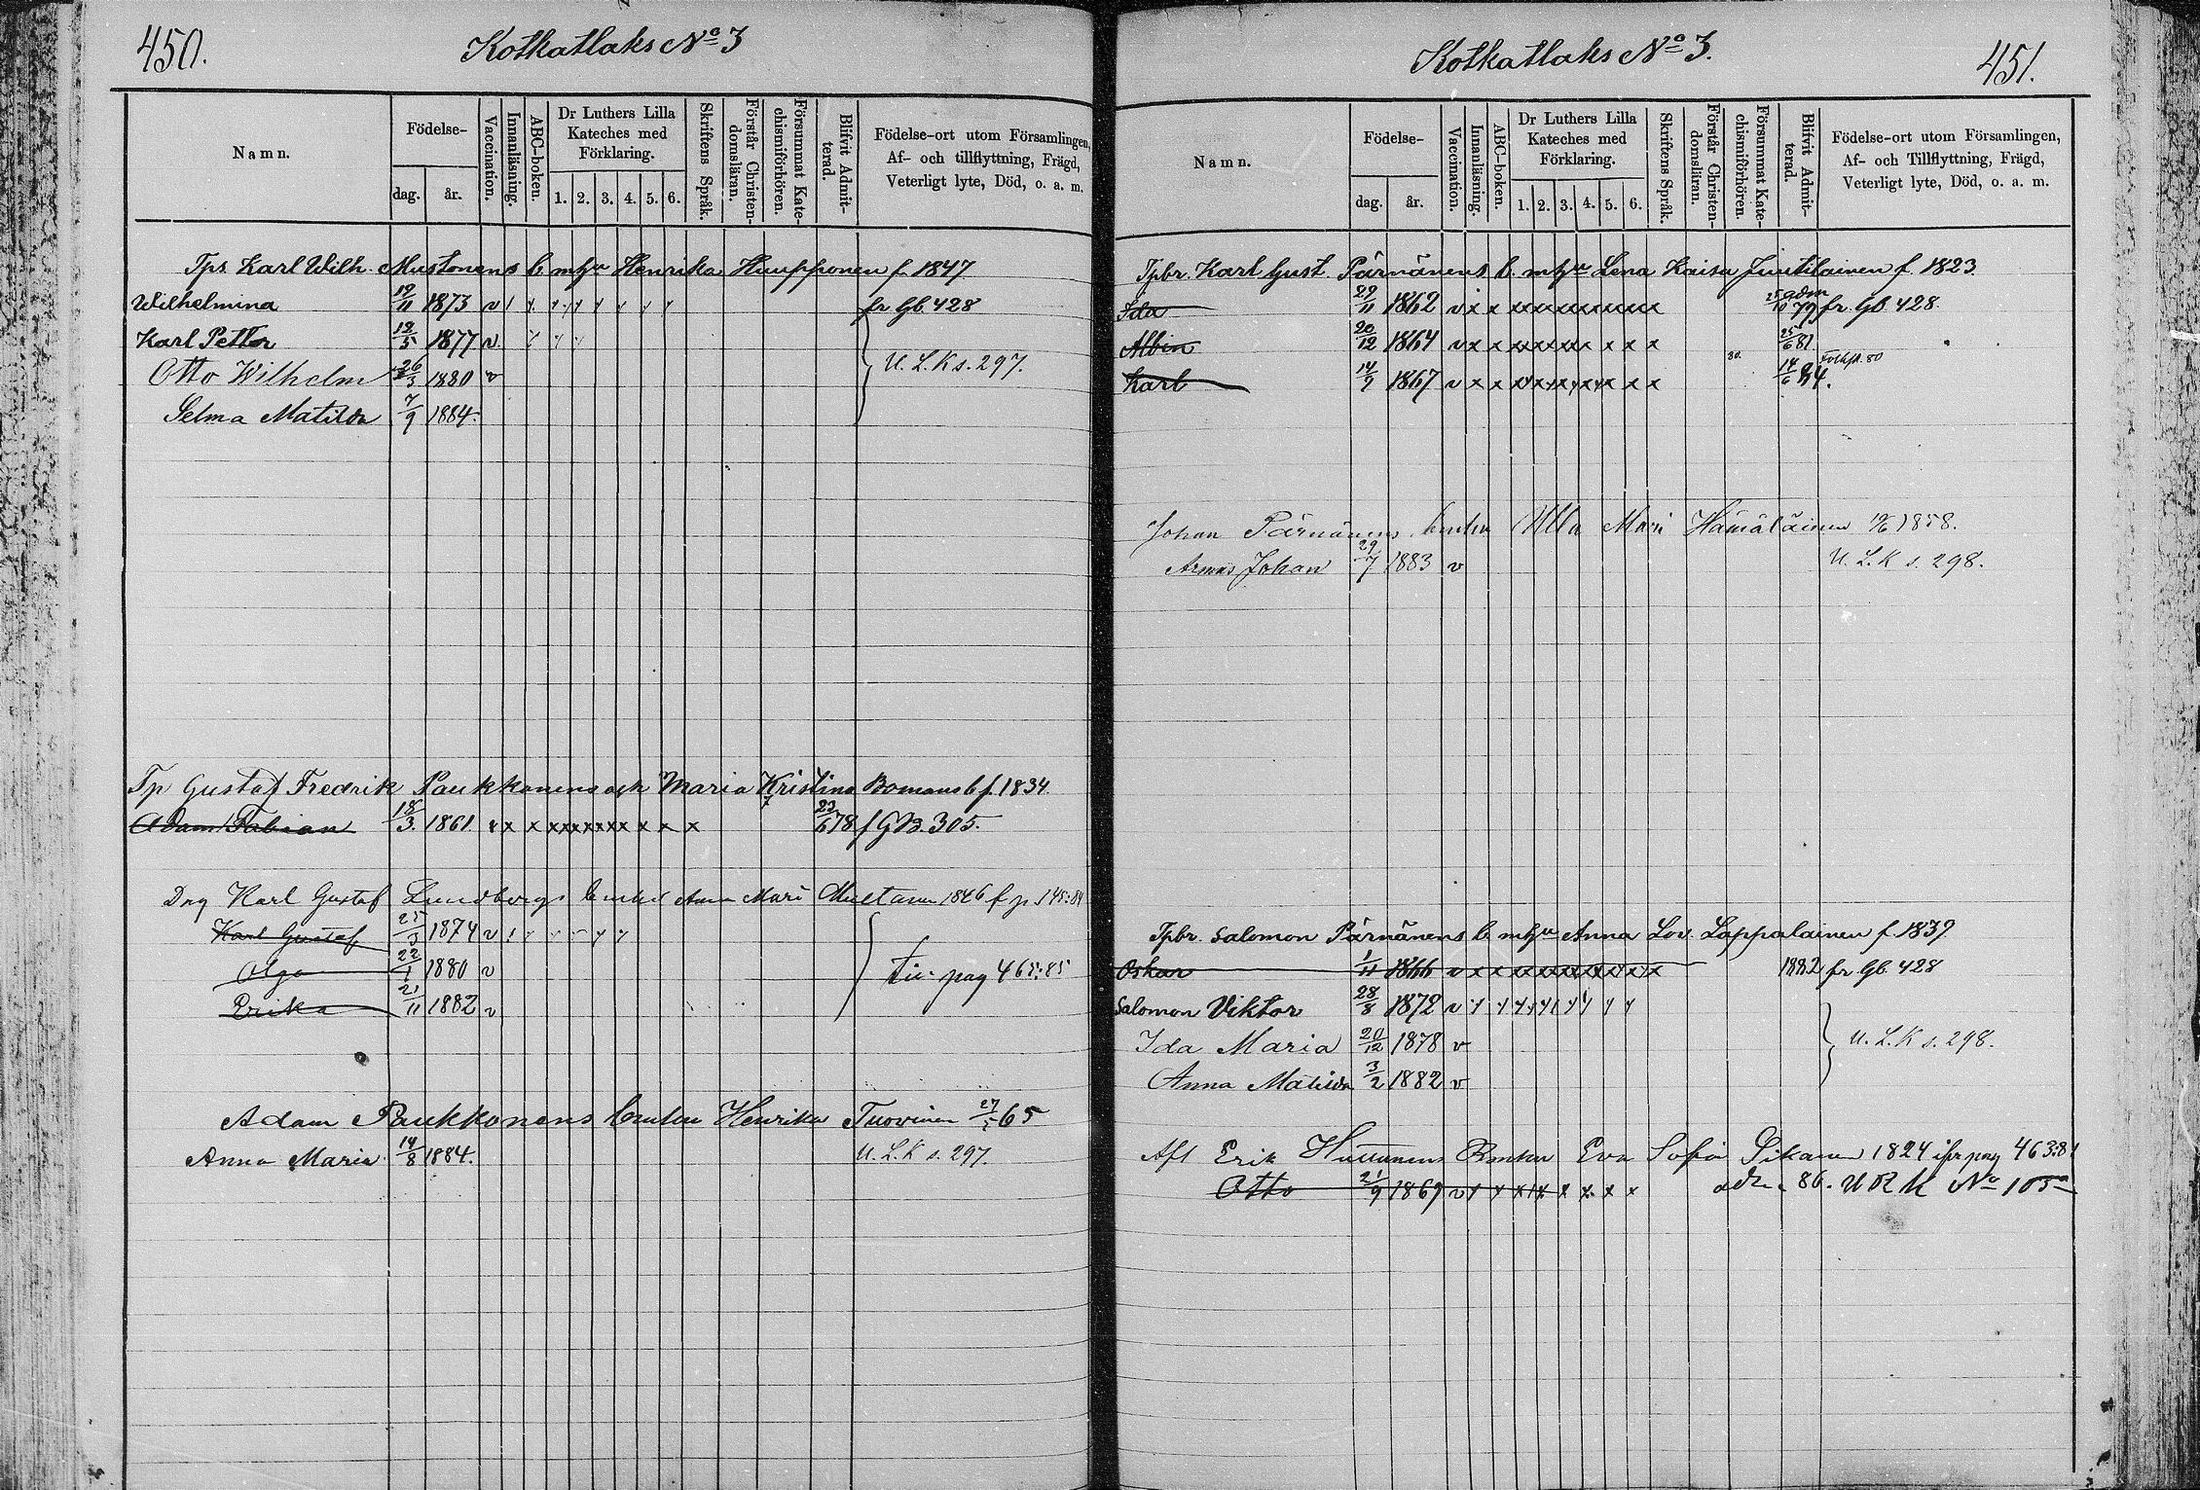 450.
Kotkatlaks No 3
Namn.
Födelse-
dag.
år.
Vaccination.
Innanläsning.
ABC-boken.
Dr Luthers Lilla Kateches med Förklaring.
1. 2. 3. 4. 5. 6.
Skriftens Språk.
Förstår Christen-domsläran.
Försummat Kate-chismiförhören.
Blifvit Admit-terad.
Födelse-ort utom Församlingen,
Af- och tillflyttning, Frägd,
Veterligt lyte, Död, o. a. m.
Tps Karl Wilh. Mustonens b. m hu Henrika Haupponen f. 1847
Wilhelmina 19/11 1873 v fr Gb. 428
Karl Petter 18/5 1877 v
Otto Wilhelm 26/3 1880 v U. L. K s. 297.
Selma Matilda 7/9 1884.
Tp Gustaf Fredrik Paukkonens och Maria Kristina Bomans b f. 1834
Adam Fabian 18/3. 1861 v x x x x x x x x x x x x 23/6 78 f GB. 305.
Drg Karl Gustaf Lundbergs Anna Mari 1846 f p. 145:84
Karl Gustaf 25/3 1874 v
Olga 22/1 1880 v Till pag 465:85
Erika 21/11 1882 v
Adam Paukkonens Henrika Tuovinen 27/5 65
Anna Maria 14/8 1884. U. L. K s. 297.
Kotkatlaks No 3.
451.
Namn.
Födelse-
dag.
år.
Vaccination.
Innanläsning.
ABC-boken.
Dr Luthers Lilla Kateches med Förklaring.
1. 2. 3. 4. 5. 6.
Skriftens Språk.
Förstår Christen-domsläran.
Försummat Kate-chismiförhören.
Blifvit Admit-terad.
Födelse-ort utom Församlingen,
Af- och Tillflyttning, Frägd,
Veterligt lyte, Död, o. a. m.
Tpbr. Karl Gust. Pärnänens b. m hu Lena Kaisa Juutilainen f. 1823
Ida 29/11 1862 v x x x x x x x x x x x adm 25/10 79 fr. Gb 428.
Albin 20/12 1864 v x x x x x x x x x x 25/6 81
Karl 14/9 1867 v x x x x x x x x x x 80. 14/6 84.
Johan Pärnänens Ulla Mari Hämäläinen 1858.
Armas Johan 29/7 1883 v U. L. K s. 298.
Tpbr. Salomon Pärnänens b. m hu Anna Lov. Lappalainen f. 1839
Oskar 1/11 1866 v x x x x x x x x x x 1882 fr Gb. 428
Salomon Viktor 28/8 1872 v
Ida Maria 20/12 1878 v U. L. K s. 298.
Anna Matilda 3/2 1882 v
Afl Erik Huttunens Eva Sofia Pikanen 1824 ifr pag 463:81
Otto 21/9 1869 v x x x x x x x x adm. 86. No 105